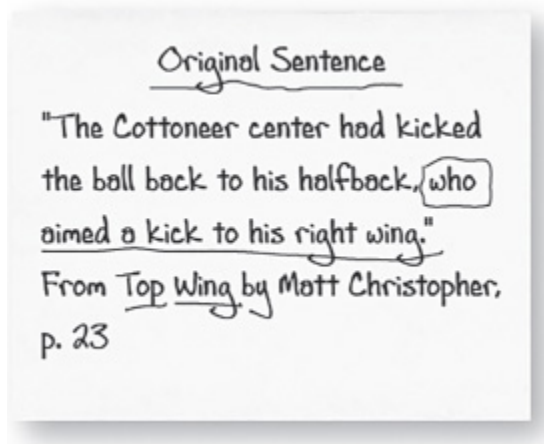 Original Sentence
"The Cottoneer center had kicked
the ball back to his halfback, who
aimed a kick to his right wing."
From Top Wing by Matt Christopher,
p. 23